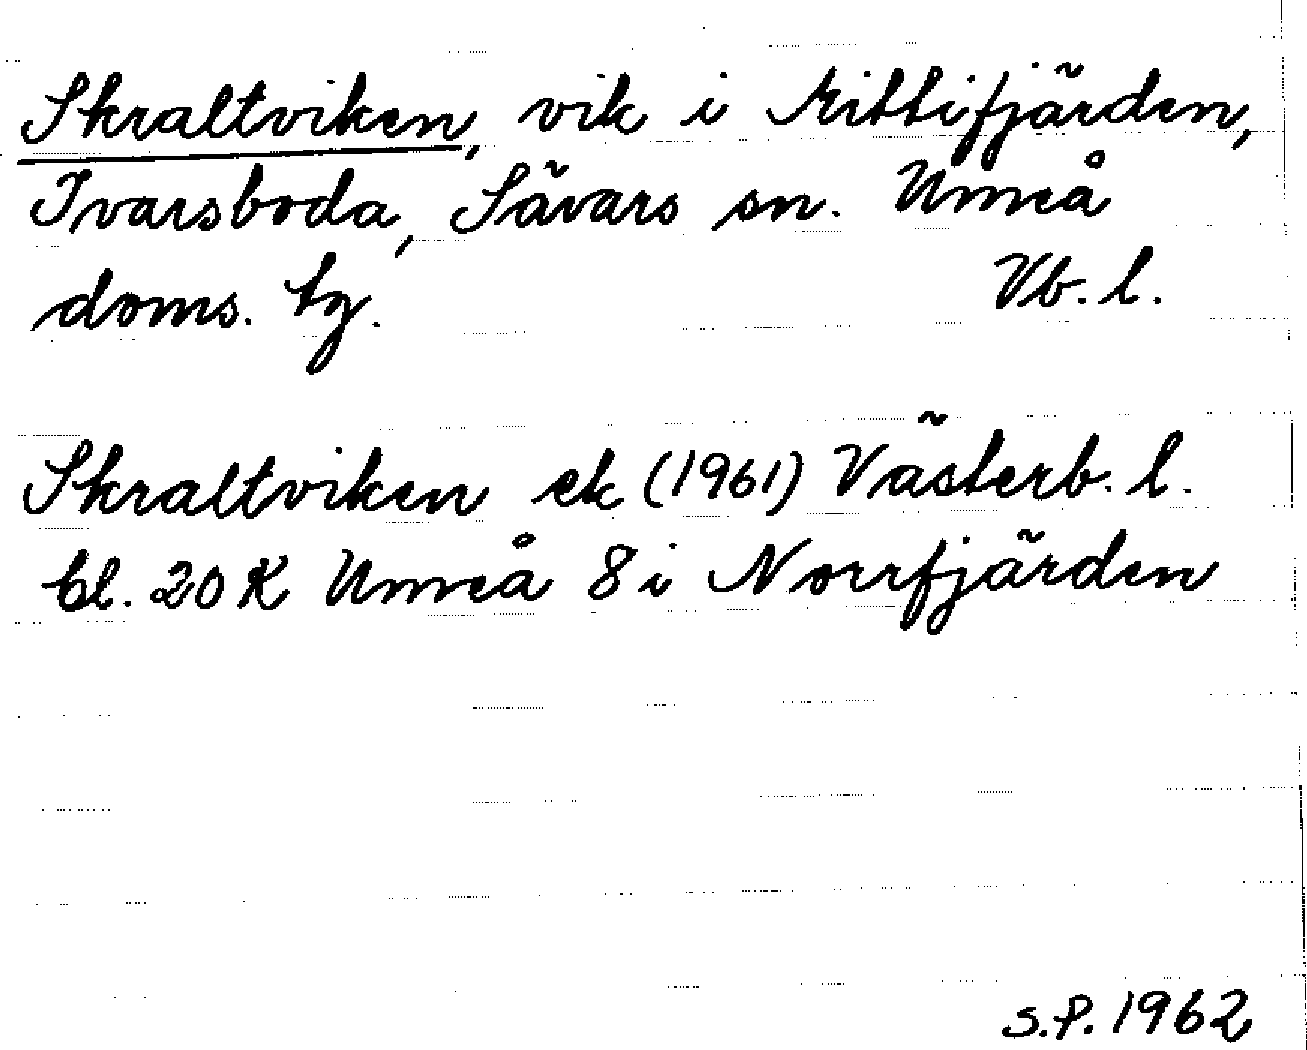 Skraltviken, vik i Mittifjärden,
Ivarsboda, Sävars sn. Umeå
doms. tg. Vb. l.
Skraltviken ek (1961) Västerb. l.
bl. 20 K Umeå 8 i Norrfjärden
S.P. 1962